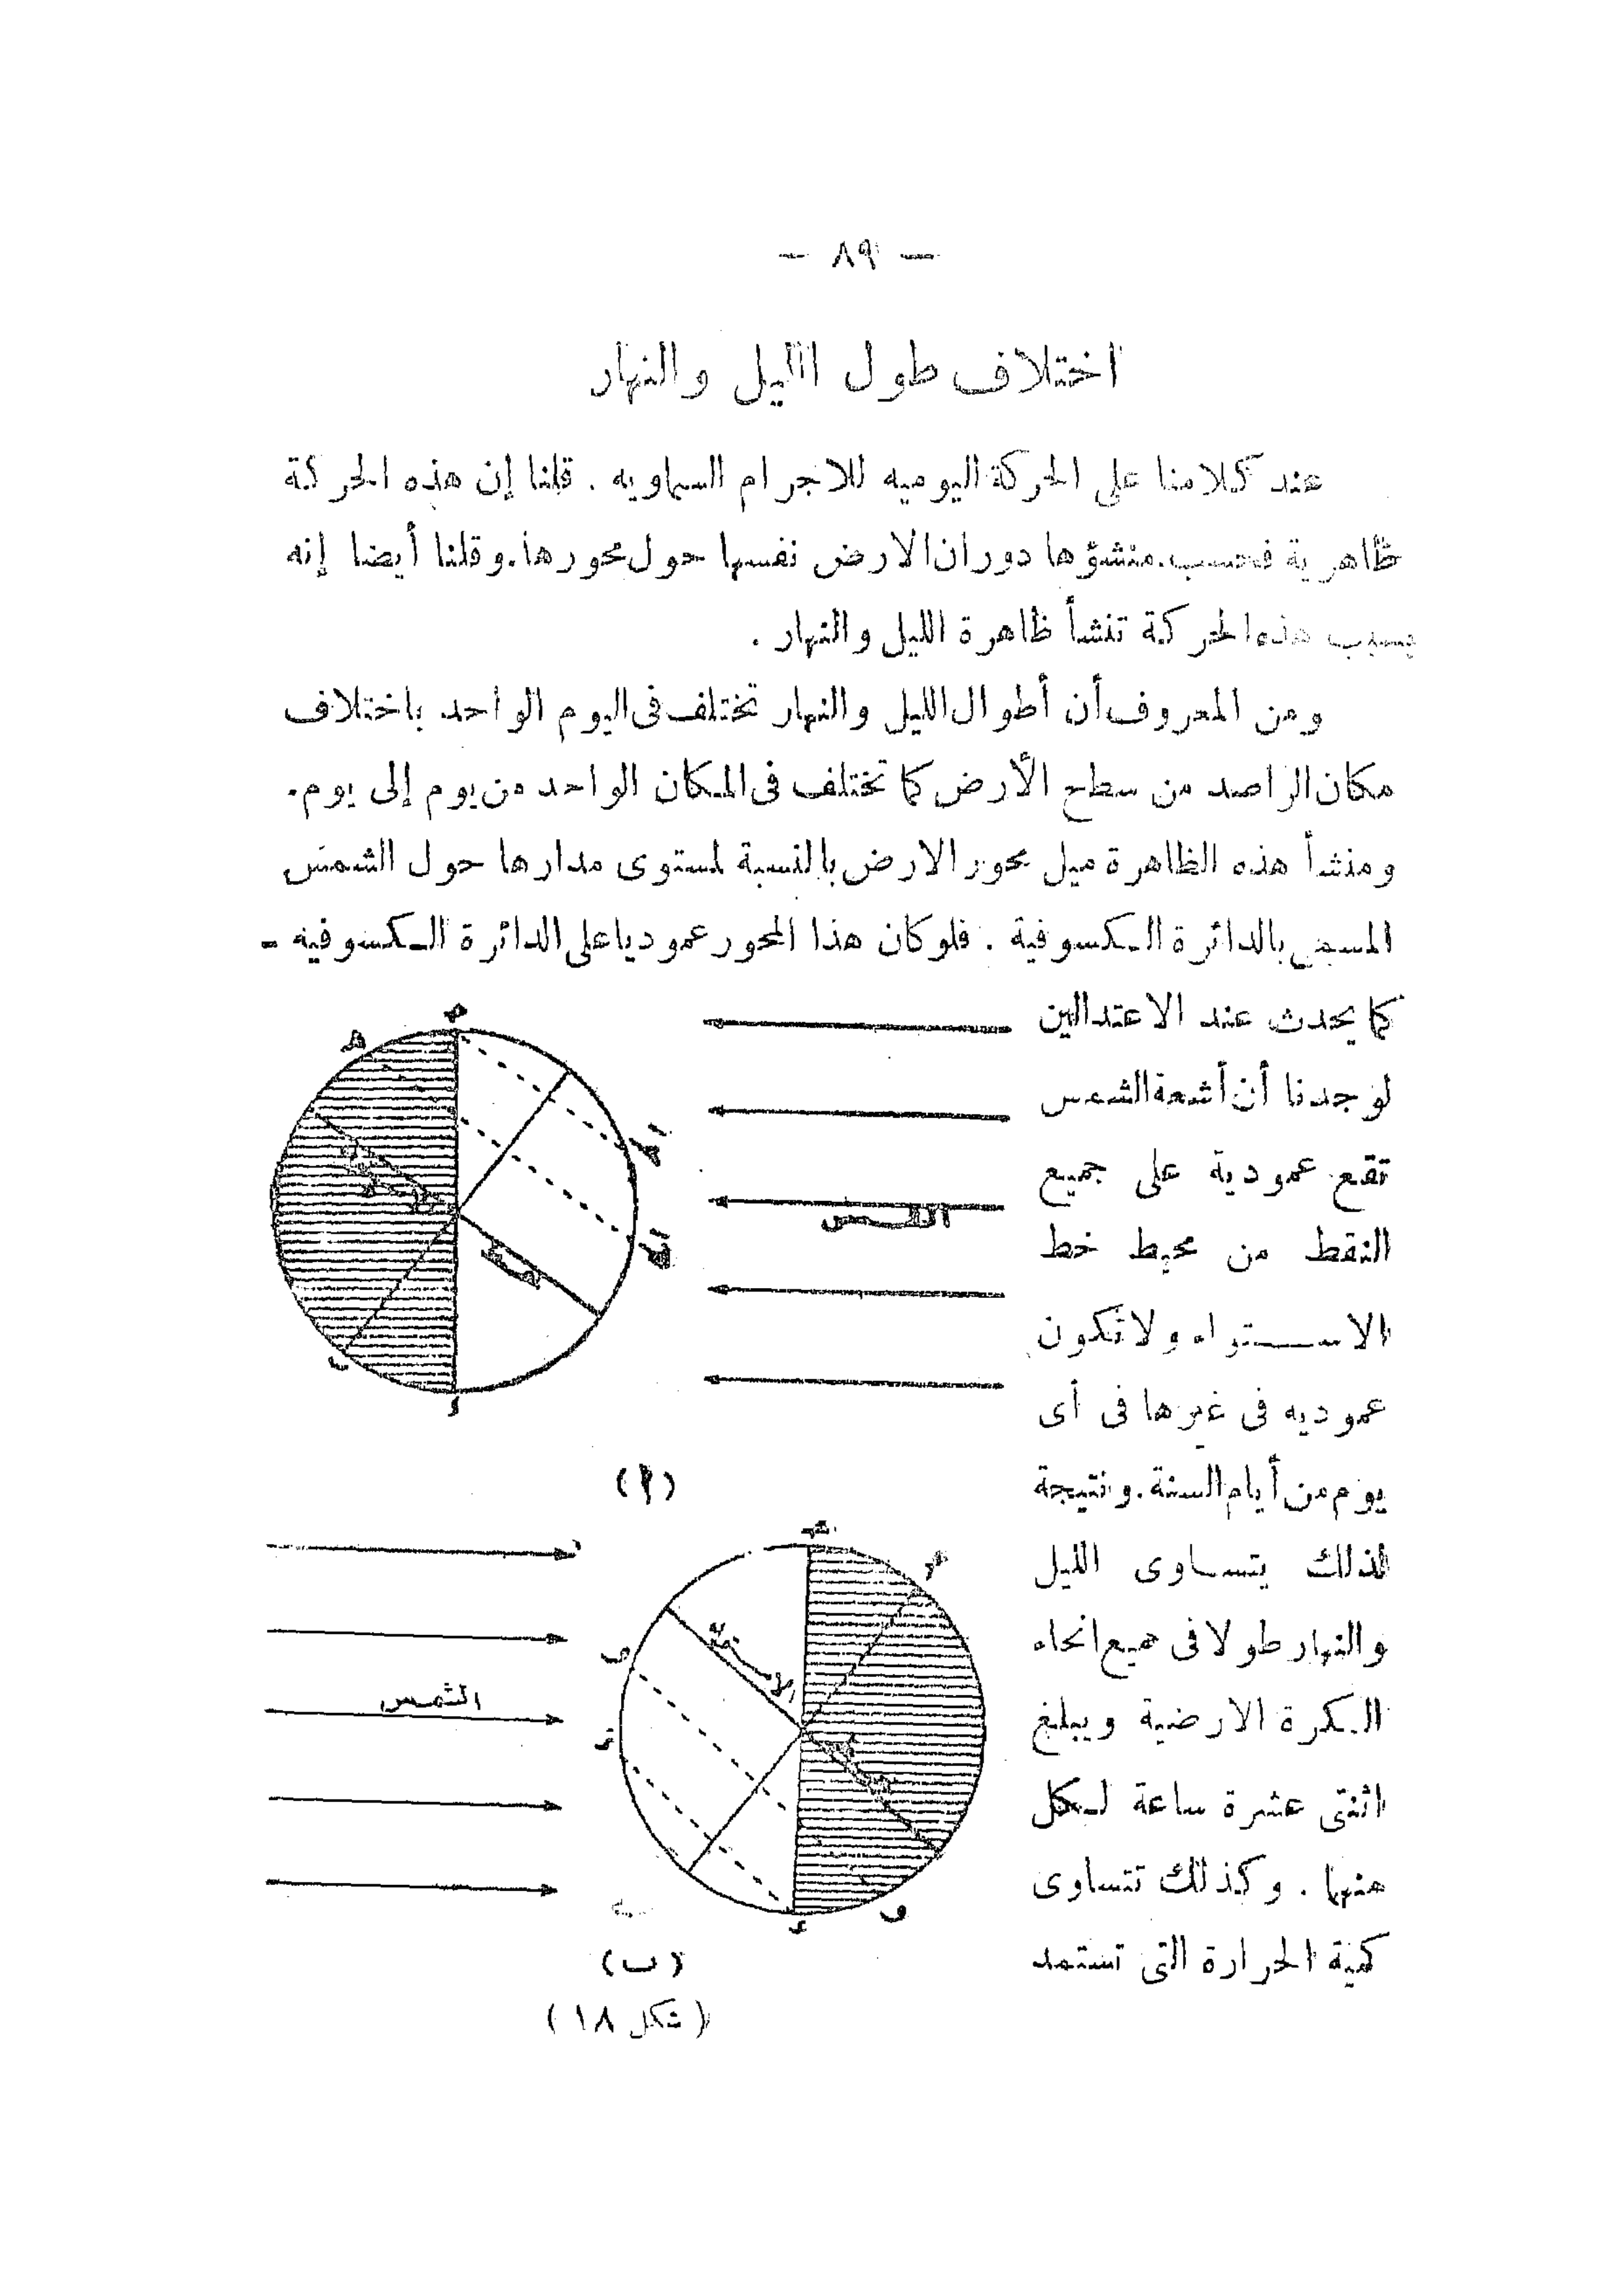 — ٨٩ —
اختلاف طول الليل والنهار
عند كلامنا على الحركة اليوميه للاجرام السماويه . قلنا إن هذه الحركة
ظاهرية فحسب. منشؤها دوران الارض نفسها حول محورها. وقلنا أيضا إنه
بسبب هذه الحركة تنشأ ظاهرة الليل والنهار .
ومن المعروف أن أطوال الليل والنهار تختلف فى اليوم الواحد باختلاف
مكان الراصد من سطح الأرض كما تختلف فى المكان الواحد من يوم إلى يوم.
ومنشأ هذه الظاهرة ميل محور الارض بالنسبة لمستوى مدارها حول الشمس
المسمى بالدائرة الكسوفية . فلو كان هذا المحور عموديا على الدائرة الكسوفيه -
كما يحدث عند الاعتدالين
لوجدنا أن أشعة الشمس
تقع عمودية على جميع
النقط من محيط خط
الاستواء ولا تكون
عموديه فى غيرها فى أى
يوم من أيام السنة. ونتيجة
لذلك يتساوى الليل
والنهار طولا فى جميع انحاء
الكرة الارضية ويبلغ
اثنتى عشرة ساعة لكل
منها . وكذلك تتساوى
كمية الحرارة التى تستمد
الشمس
(ا)
الشمس
(ب)
(شكل ١٨)